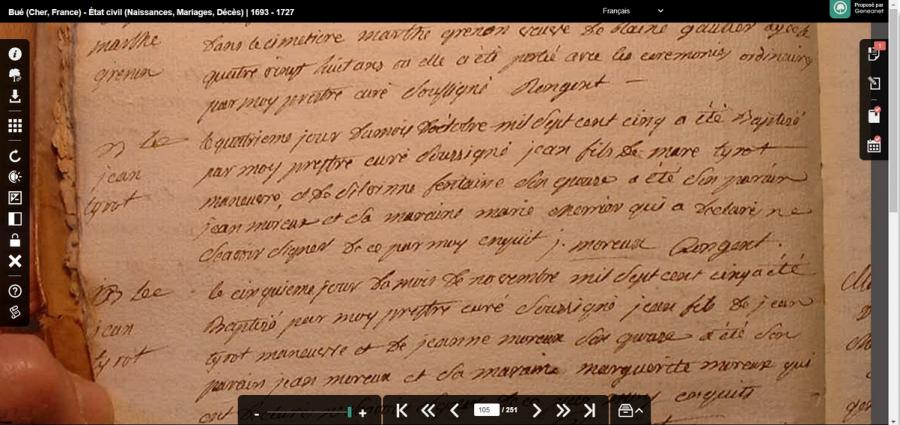 Bué (Cher, France) - État civil (Naissances, Mariages, Décès) | 1693 - 1727
Français
Proposé par
Geneanet
1
marthe
grenon
dans le cimetiere marthe grenon veufve de blaise gautier
quatre vingt huit ans ou elle a été porté avec les ceremonies ordinaires
par moy prestre curé soussigné Rongent
jean
tyrot
le quatrieme jour du mois d'octobre mil sept cent cinq a été Baptisé
par moy prestre curé soussigné jean fils de marc tyrot
maneuvre, et de fontaine son epouse a été son parain
jean moreux et sa maraine marie qui a declaré ne
scavoir signer de ce par moy j. moreux Rongent
jean
tyrot
le cinquieme jour du mois de novembre mil sept cent cinq a été
Baptisé par moy prestre curé soussigné jean fils de jean
tyrot maneuvre et de jeanne moreux son epouse a été son
parain jean moreux et sa maraine marguerite moreux qui
ont
105 / 251